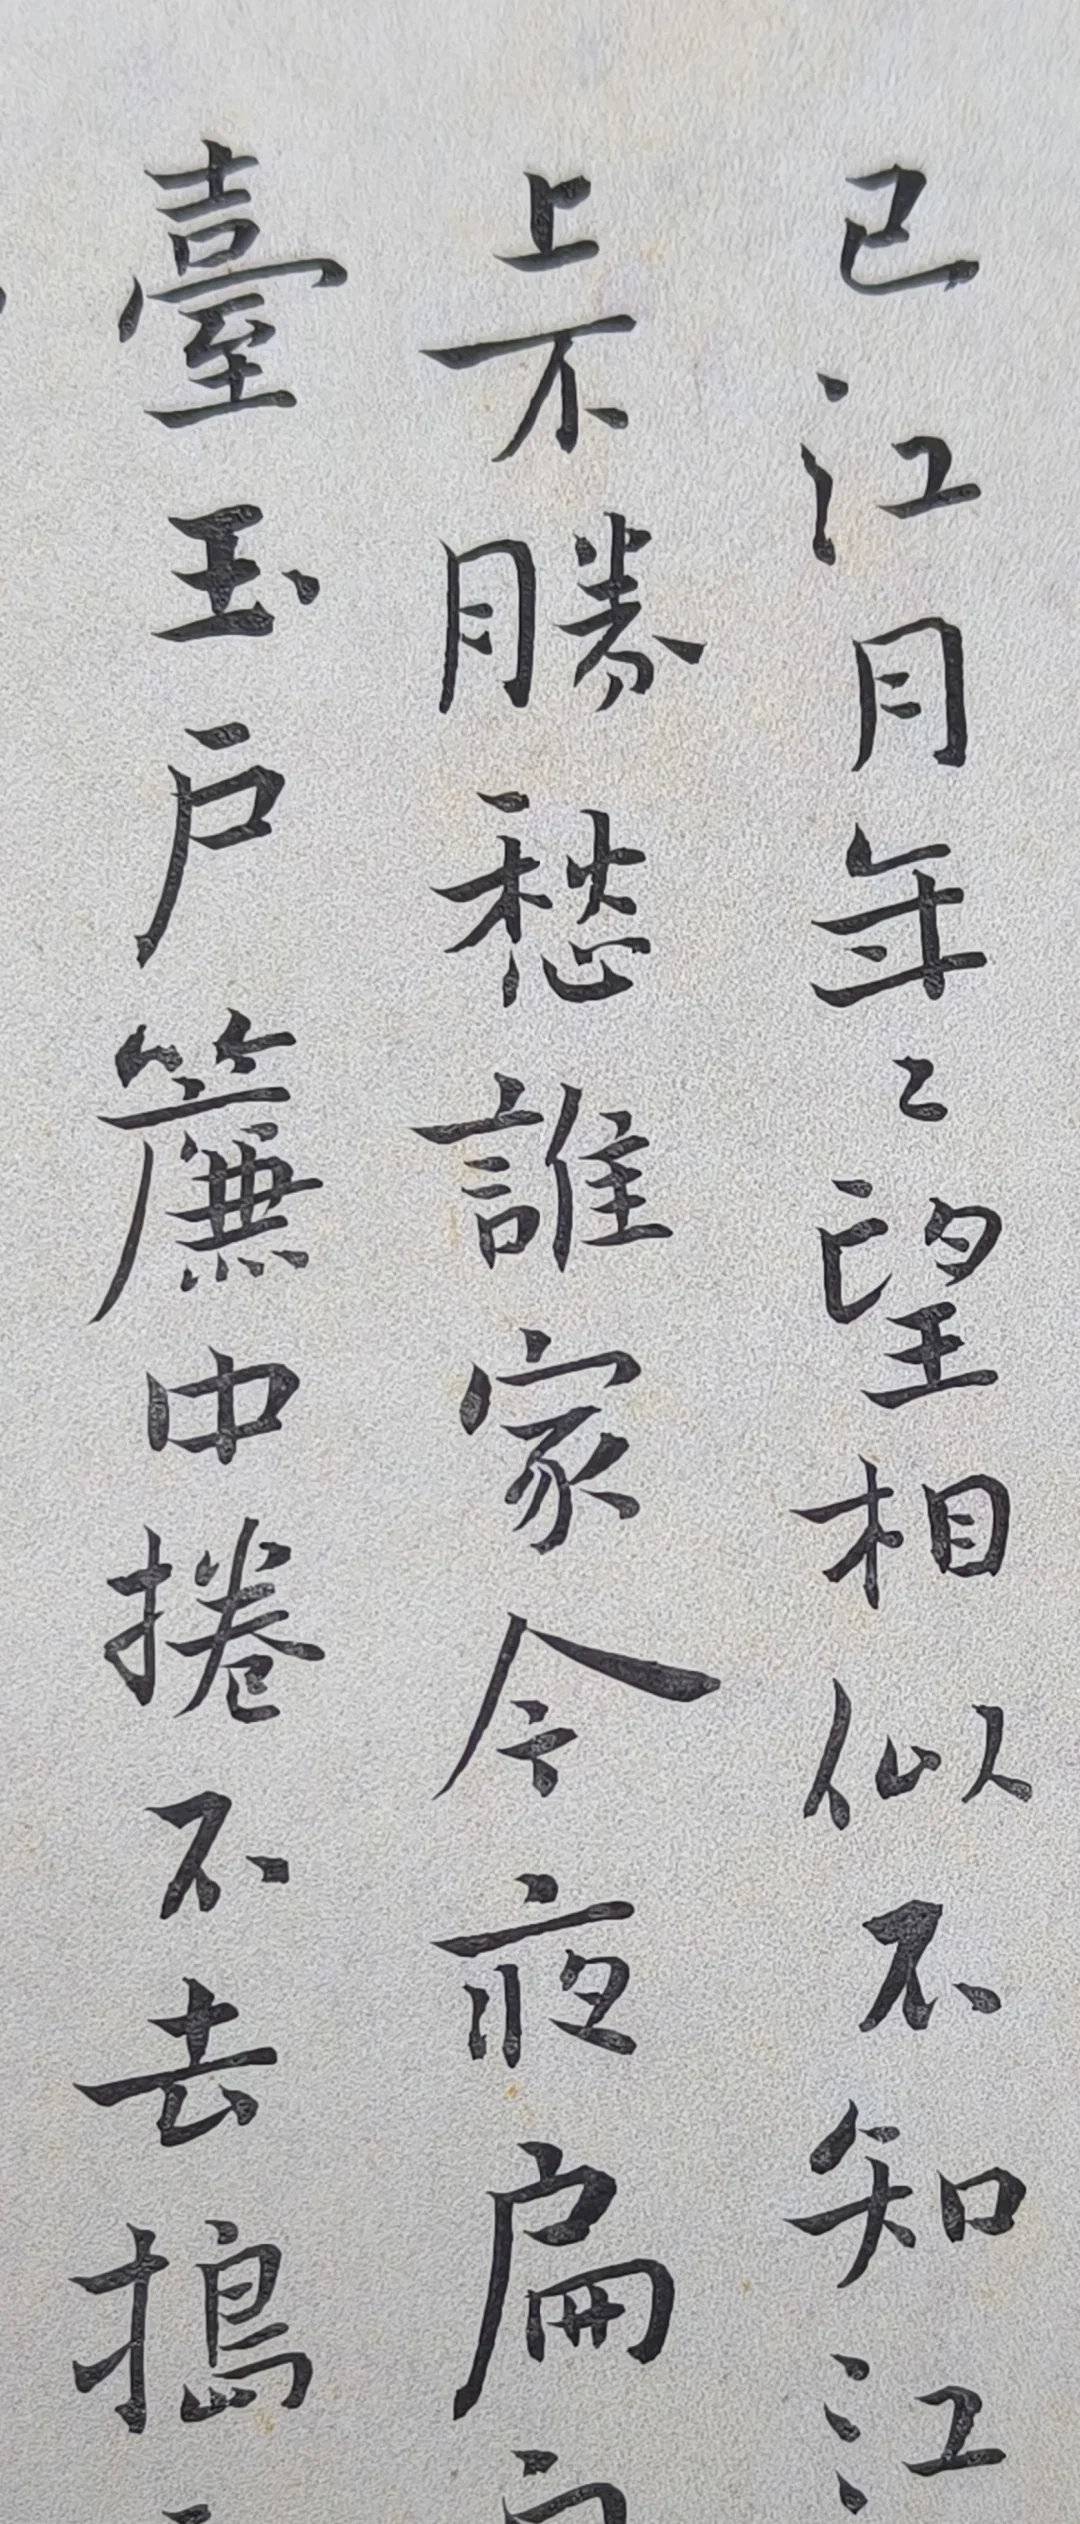 已江月年〻望相似不知江
上不勝愁誰家今夜扁
臺玉戶簾中捲不去搗